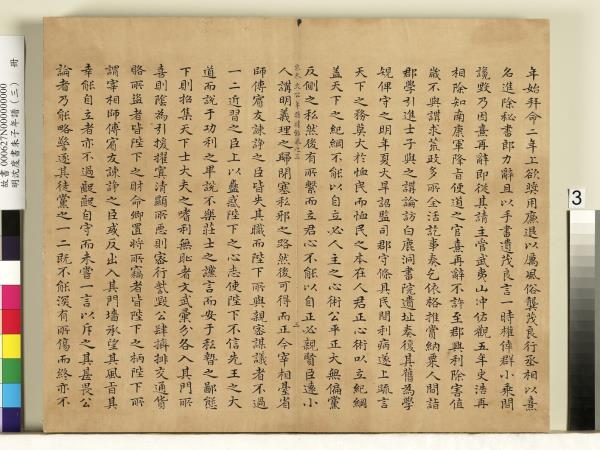 年始拜命二年上欲奬用廉退以厲風俗龔茂良行丞相以熹
名進除秘書郎力辭且以手書遺茂良言一時權倖群小乘間
讒毀乃因熹再辭即從其請主管武夷山冲佑觀五年史浩再
相除知南康軍降旨便道之官熹再辭不許至郡興利除害值
歲不雨講求荒政多所全活訖事奏乞依格推賞納粟人間詣
郡學引進士子與之講論訪白鹿洞書院遺址奏復其舊為學
規俾守之明年夏大旱詔監司郡守條具民間利病遂上疏言
天下之務莫大於恤民而恤民之本在人君正心術以立紀綱
蓋天下之紀綱不能以自立必人主之心術公平正大無偏黨
反側之私然後有所繫而立君心不能以自正必親賢臣遠小
人講明義理之歸閉塞私邪之路然後可得而正今宰相臺省
師傅賓友諫諍之臣皆失其職而陛下所與親密謀議者不過
一二近習之臣上以蠱惑陛下之心志使陛下不信先王之大
道而說于功利之卑說不樂莊士之讜言而安于私暬之鄙態
下則招集天下士大夫之嗜利無恥者文武彙分各入其門所
喜則陰為引援擢寘清顯所惡則密行訾毀公肆擠排交通貨
賂所盜者皆陛下之財命卿置將所竊者皆陛下之柄陛下所
謂宰相師傅賓友諫諍之臣或反出入其門墻承望其風旨其
幸能自立者亦不過齪齪自守而未嘗一言以斥之其甚畏公
論者乃能略警逐其徒黨之一二既不能深有所傷而終亦不
故書 000627N000000000
明沈度書朱子年譜(三) 冊
3